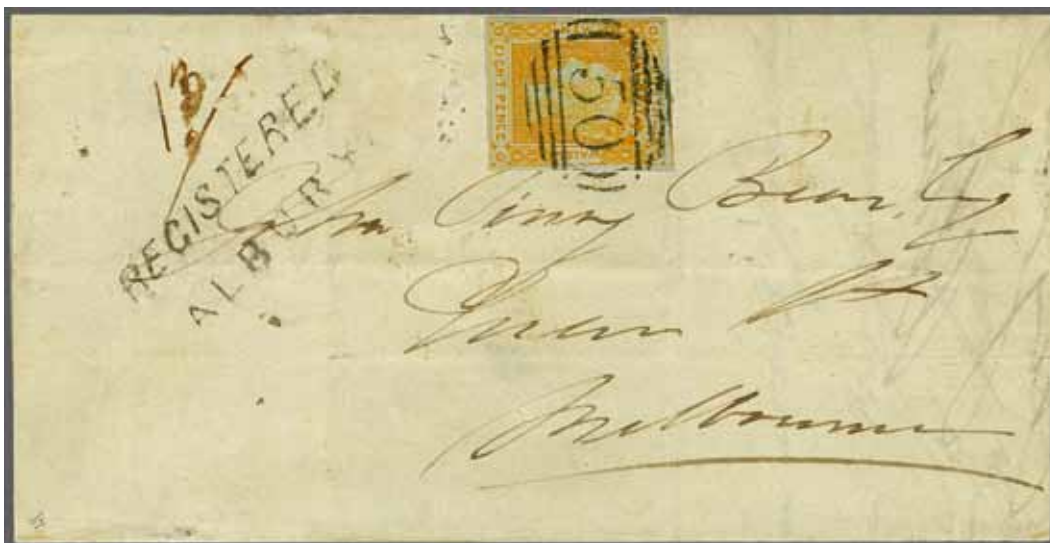 13
REGISTERED
ALBURY
EIGHT PENCE
WALES
50
John Pinney Bear, Esq
Queen St
Melbourne